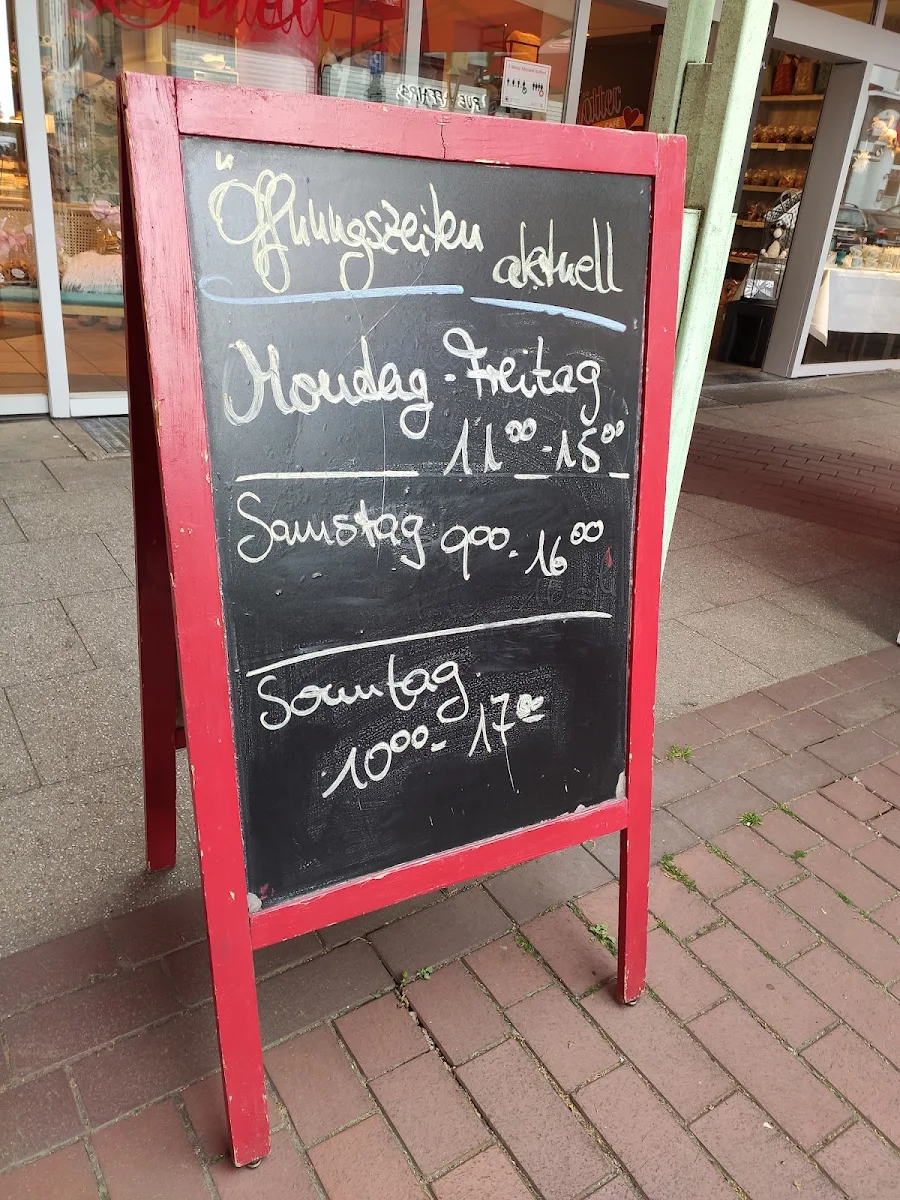 Öffnungszeiten aktuell
Mondag - Freitag
11⁰⁰ - 15⁰⁰
Samstag 9⁰⁰ - 16⁰⁰
Sonntag
10⁰⁰ - 17⁰⁰